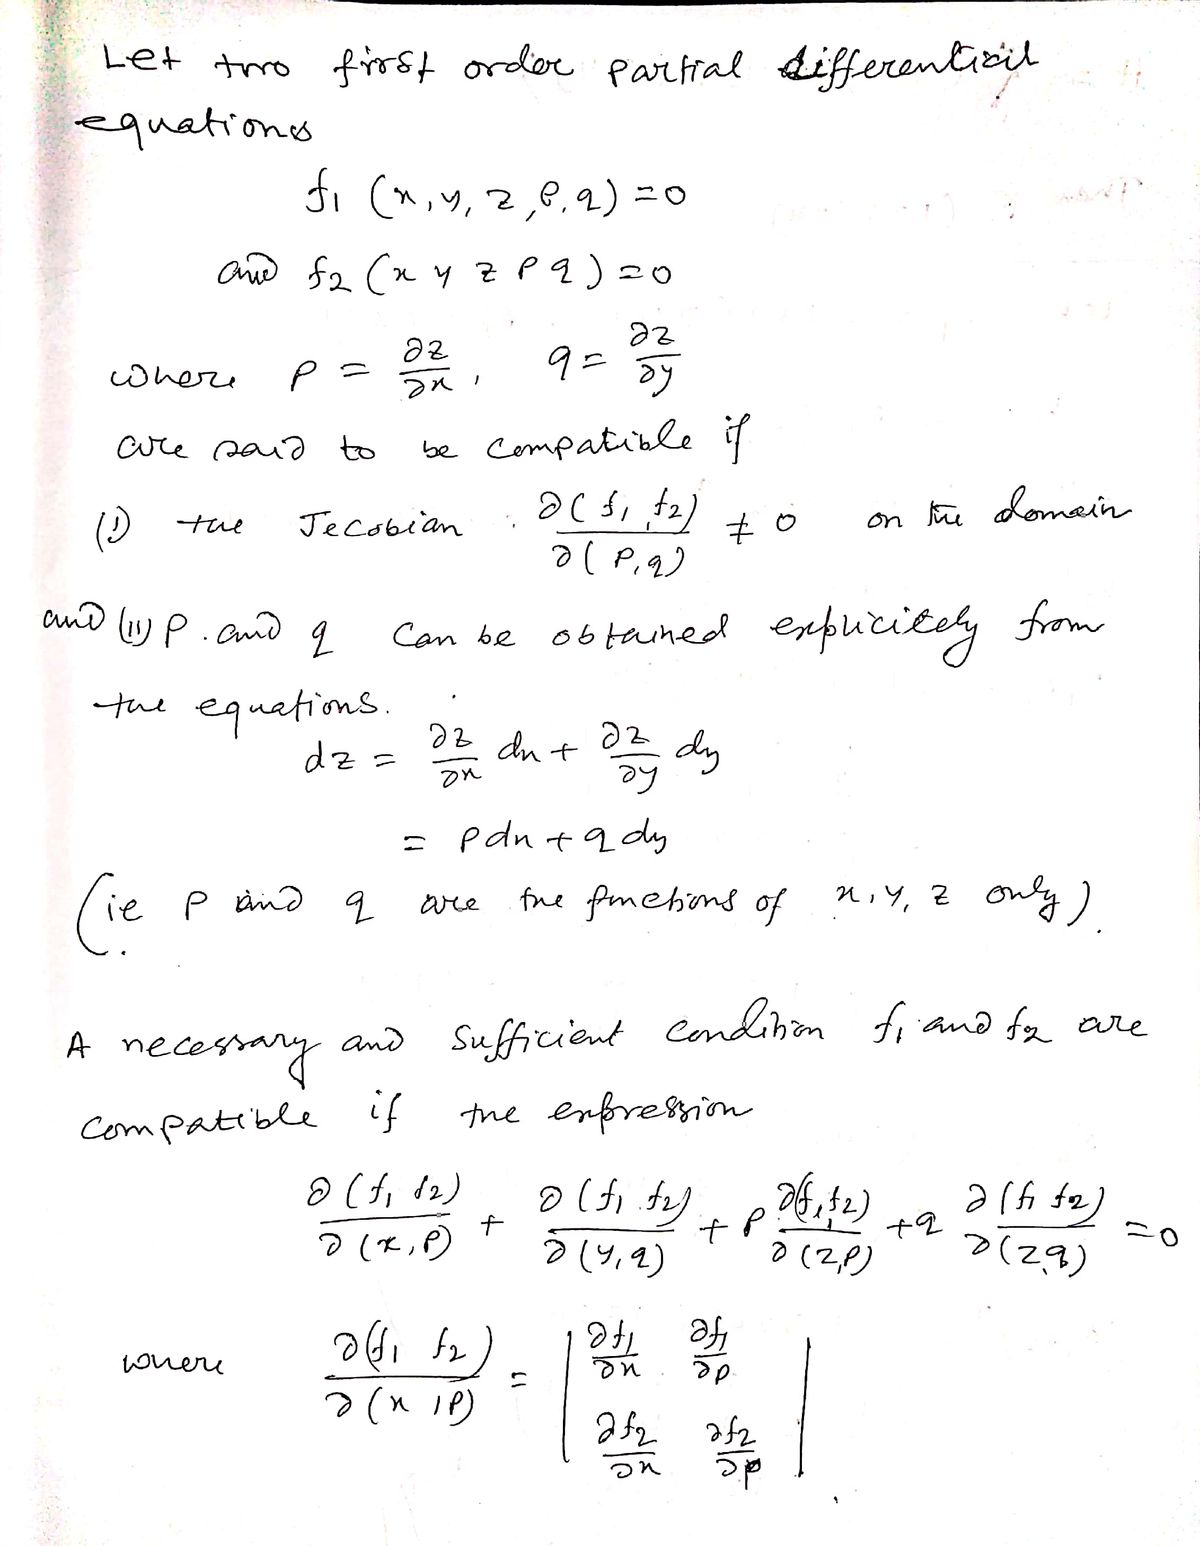 Let two first order partial differential
equations
f₁ (x, y, z, p, q) = 0
and f₂ (x y z p q) = 0
where p = ∂z/∂x, q = ∂z/∂y
are said to be compatible if
(i) the Jecobian ∂(f₁, f₂)/∂(p, q) ≠ 0 on the domain
and (ii) p and q can be obtained explicitely from
the equations.
dz = ∂z/∂x dx + ∂z/∂y dy
= p dx + q dy
(ie p and q are the functions of x, y, z only).
A necessary and sufficient condition f₁ and f₂ are
compatible if the expression
∂(f₁ f₂)/∂(x, p) + ∂(f₁ f₂)/∂(y, q) + p ∂(f₁, f₂)/∂(z, p) + q ∂(f₁ f₂)/∂(z, q) = 0
where ∂(f₁ f₂)/∂(x, p) = | ∂f₁/∂x ∂f₁/∂p |
| ∂f₂/∂x ∂f₂/∂p |